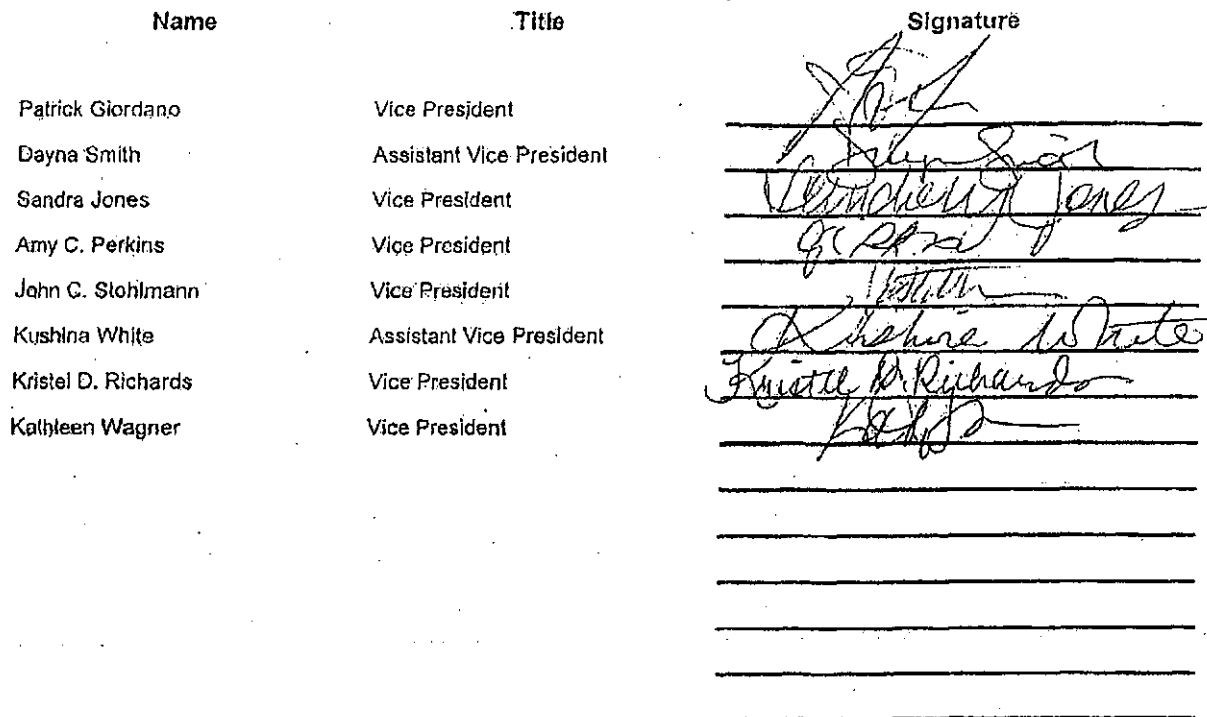 Name Title Signature
Patrick Giordano Vice President
Dayna Smith Assistant Vice President
Sandra Jones Vice President Jones
Amy C. Perkins Vice President
John C. Stohlmann Vice President
Kushina White Assistant Vice President White
Kristel D. Richards Vice President Kristel D. Richards
Kathleen Wagner Vice President